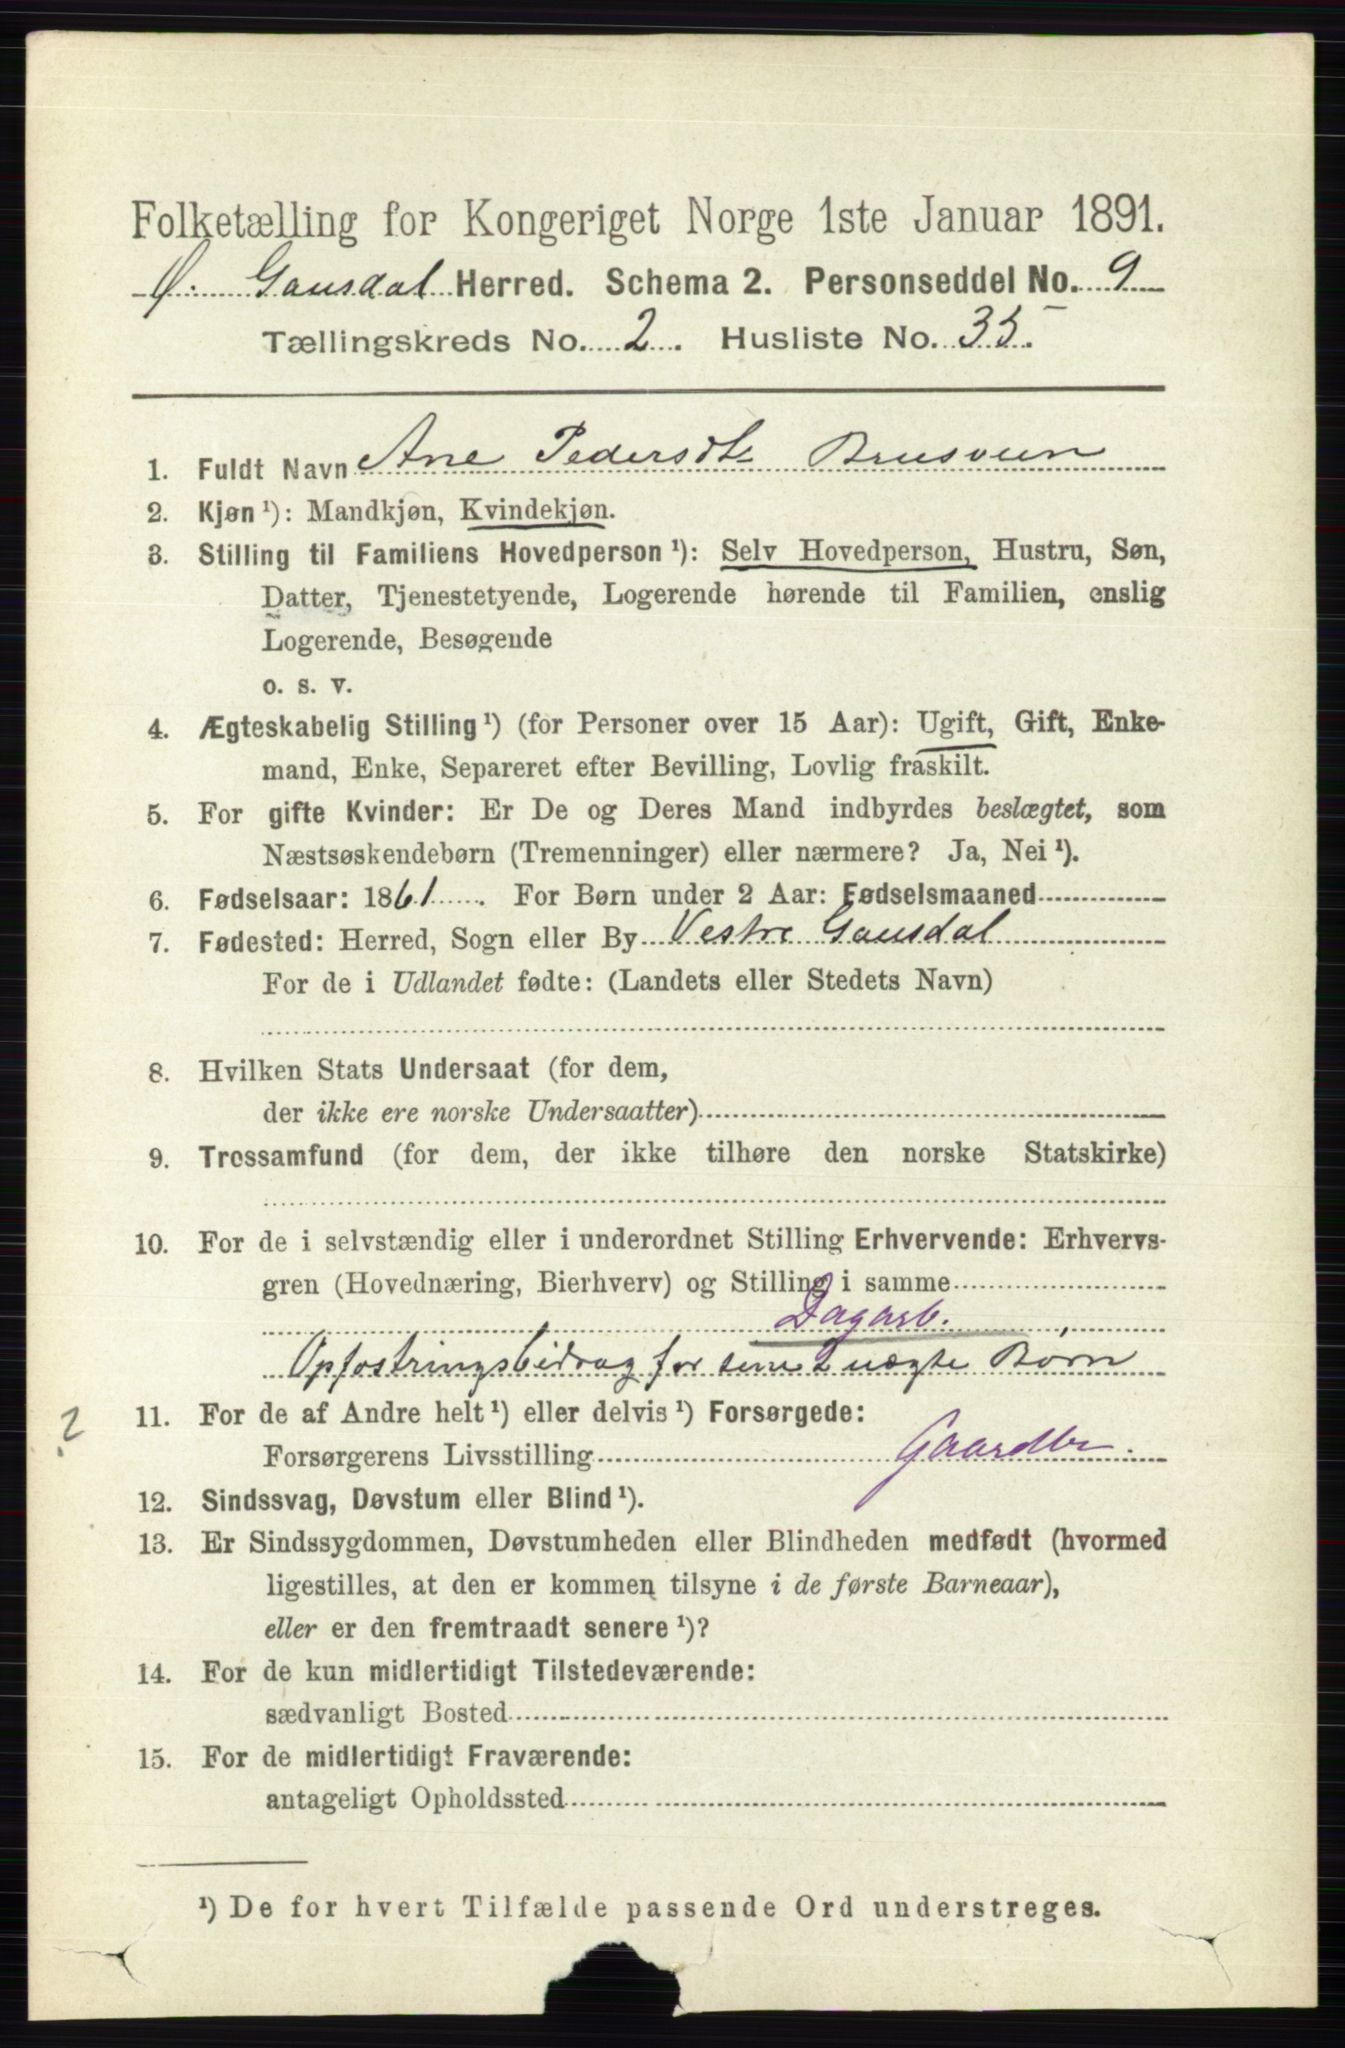 Folketælling for Kongeriget Norge 1ste Januar 1891.
Ø. Gausdal Herred. Schema 2. Personseddel No. 9
Tællingskreds No. 2. Husliste No. 35
1. Fuldt Navn Ane Pedersdtr Brusveen
2. Kjøn ¹): Mandkjøn, Kvindekjøn.
3. Stilling til Familiens Hovedperson ¹): Selv Hovedperson, Hustru, Søn,
Datter, Tjenestetyende, Logerende hørende til Familien, enslig
Logerende, Besøgende
o. s. v.
4. Ægteskabelig Stilling ¹) (for Personer over 15 Aar): Ugift, Gift, Enke-
mand, Enke, Separeret efter Bevilling, Lovlig fraskilt.
5. For gifte Kvinder: Er De og Deres Mand indbyrdes beslægtet, som
Næstsøskendebørn (Tremenninger) eller nærmere? Ja, Nei ¹).
6. Fødselsaar: 1861. For Børn under 2 Aar: Fødselsmaaned
7. Fødested: Herred, Sogn eller By Vestre Gausdal
For de i Udlandet fødte: (Landets eller Stedets Navn)
8. Hvilken Stats Undersaat (for dem,
der ikke ere norske Undersaatter)
9. Trossamfund (for dem, der ikke tilhøre den norske Statskirke)
10. For de i selvstændig eller i underordnet Stilling Erhvervende: Erhvervs-
gren (Hovednæring, Bierhverv) og Stilling i samme
Dagarb.,
Opfostringsbidrag for sine 2 uægte Børn
? 11. For de af Andre helt ¹) eller delvis ¹) Forsørgede:
Forsørgerens Livsstilling Gaardbr.
12. Sindssvag, Døvstum eller Blind ¹).
13. Er Sindssygdommen, Døvstumheden eller Blindheden medfødt (hvormed
ligestilles, at den er kommen tilsyne i de første Barneaar),
eller er den fremtraadt senere ¹)?
14. For de kun midlertidigt Tilstedeværende:
sædvanligt Bosted
15. For de midlertidigt Fraværende:
antageligt Opholdssted
¹) De for hvert Tilfælde passende Ord understreges.